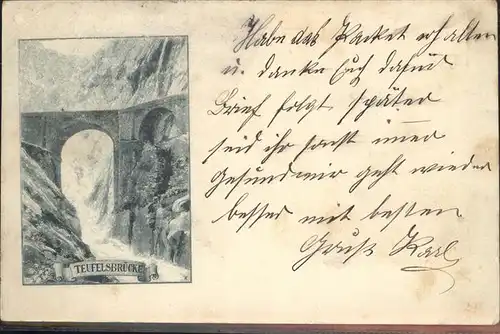 Habe das Packet erhalten
u. danke Euch dafür
Brief folgt später
seid ihr sonst imer
gesund mir geht wieder
besser mit besten
Gruß Karl
TEUFELSBRÜCKE